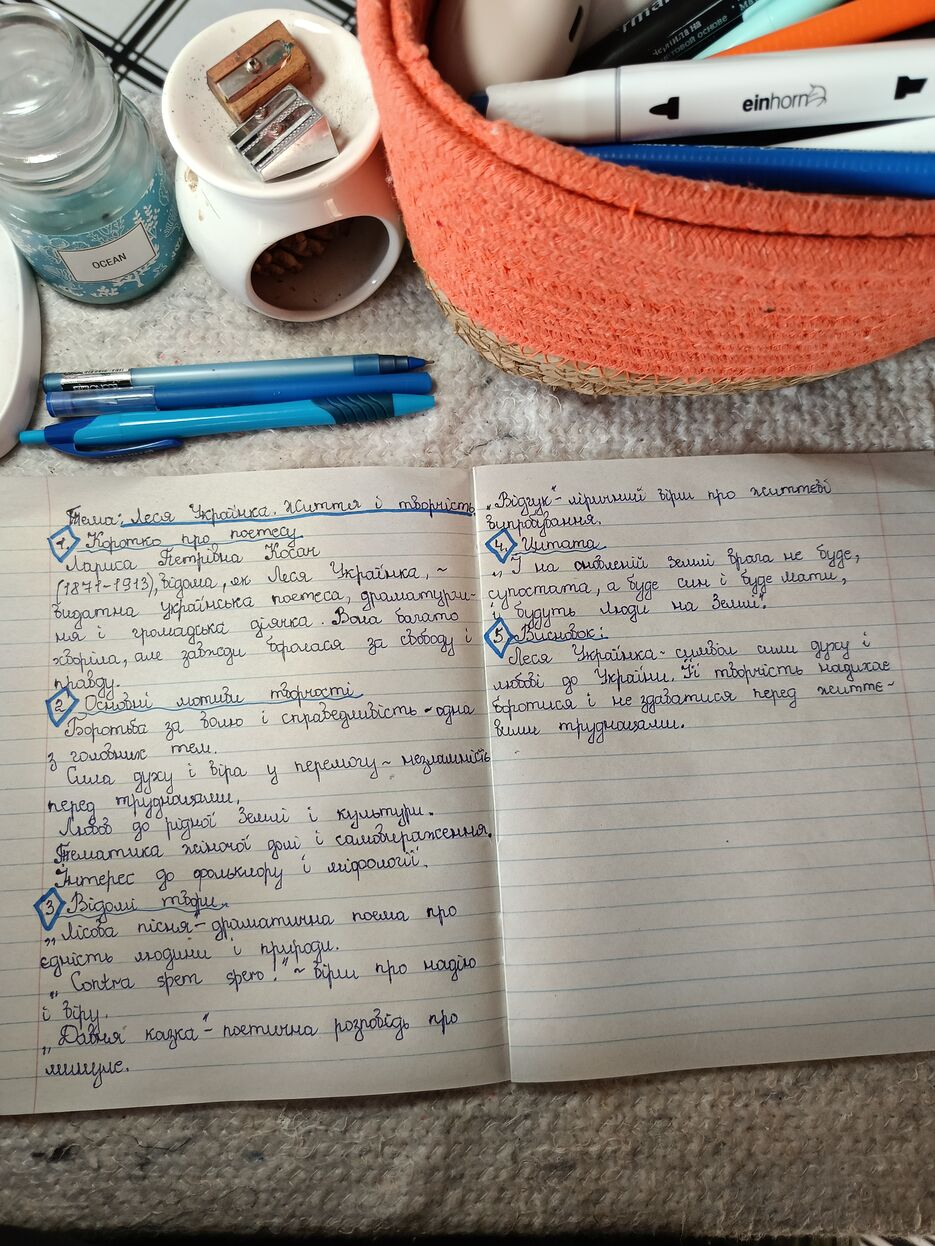 OCEAN
einhorn
Тема: Леся Українка. Життя і творчість
1. Коротко про поетесу
Лариса Петрівна Косач
(1871-1913), відома, як Леся Українка, ~
видатна українська поетеса, драматурги-
ня і громадська діячка. Вона багато
хворіла, але завжди боролася за свободу і
правду.
2 Основні мотиви творчості
Боротьба за волю і справедливість - одна
з головних тем.
Сила духу і віра у перемогу ~ незламність
перед труднощами.
Любов до рідної землі і культури.
Тематика жіночої долі і самовираження.
Інтерес до фольклору і міфології.
3 Відомі твори.
„Лісова пісня"- драматична поема про
єдність людини і природи.
„Contra spem spero!" ~ вірш про надію
і віру.
„Давня казка"- поетична розповідь про
минуле.
„Відгук"- ліричний вірш про життєві
випробування.
4. Цитата
„І на оновленій землі врага не буде,
супостата, а буде син і буде мати,
і будуть люди на землі."
5 Висновок:
Леся Українка - символ сили духу і
любові до України. Її творчість надихає
боротися і не здаватися перед життє-
вими труднощами.